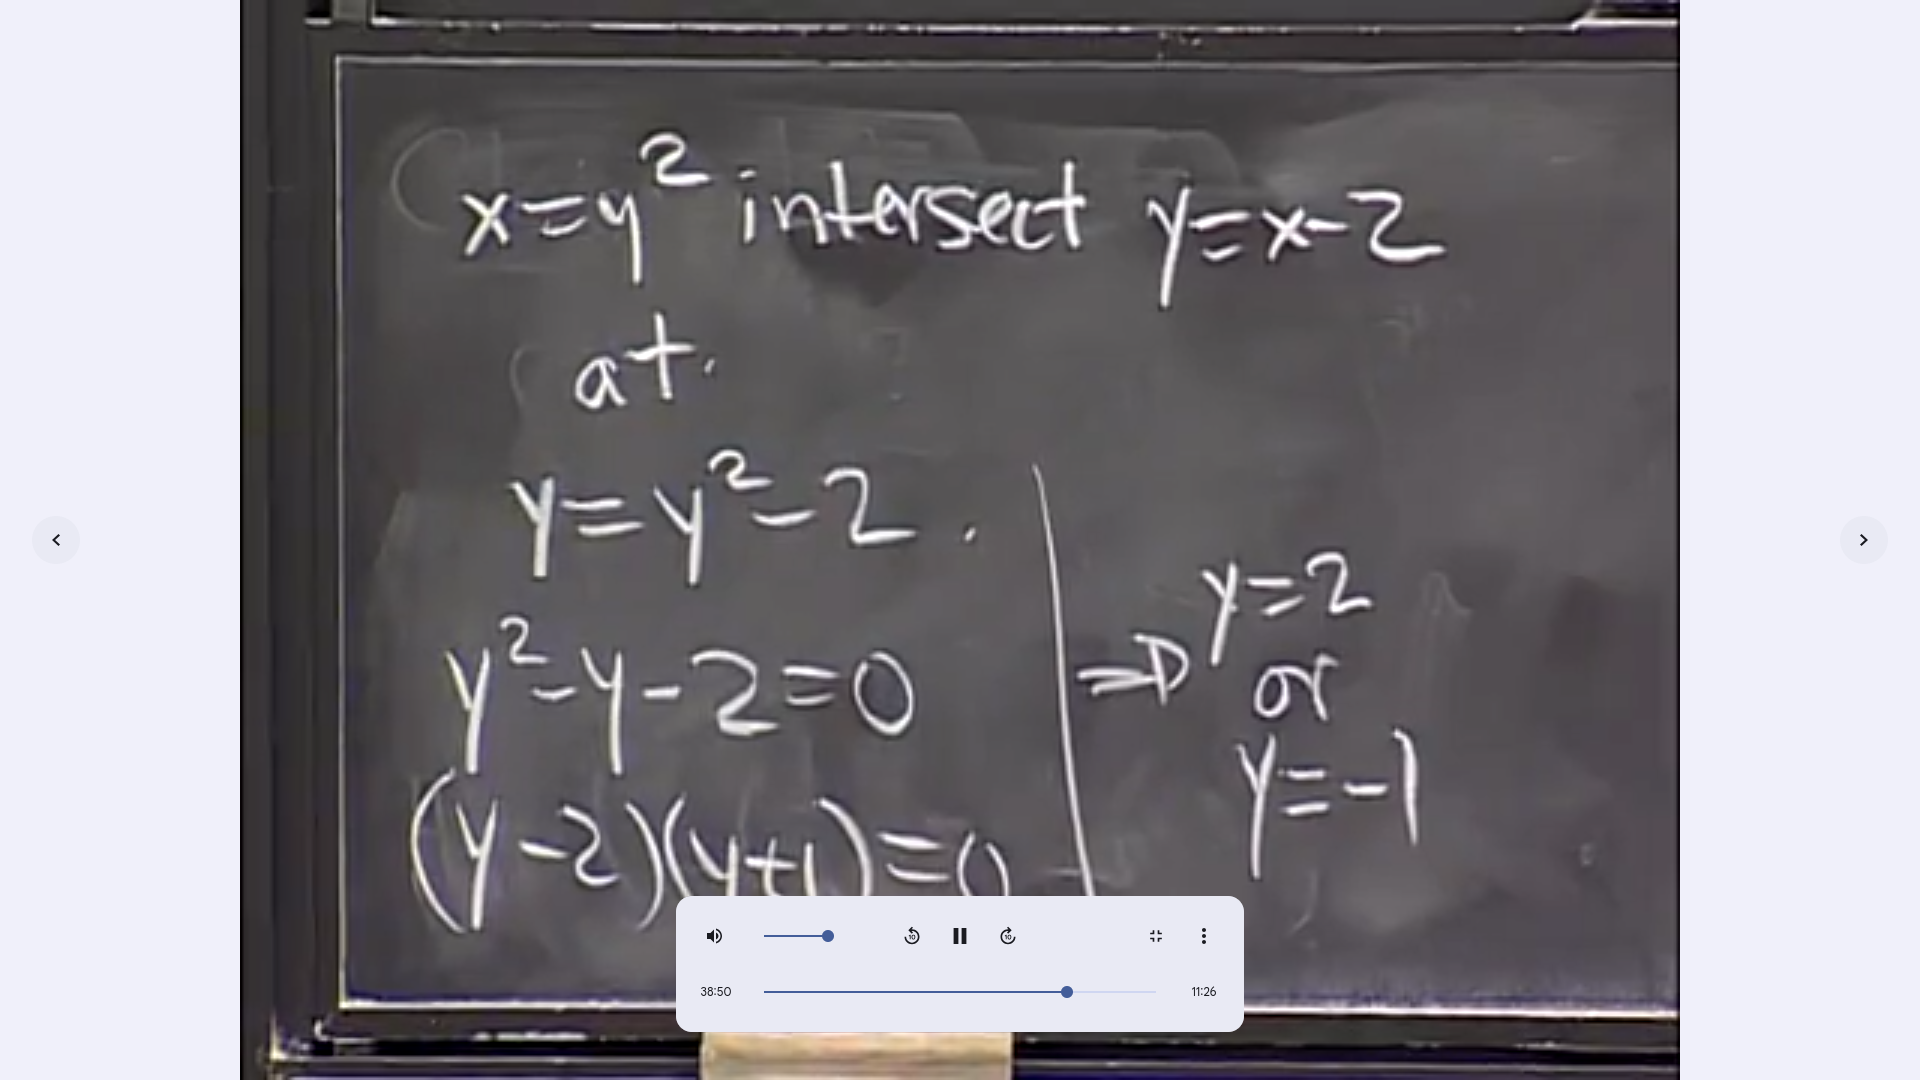 x=y² intersect y=x-2
at.
y=y²-2.
y²-y-2=0
(y-2)(y+1)=0
⇒ y=2
or
y=-1
10
10
38:50
11:26